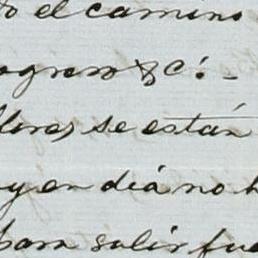 o el camino
ogreso &c. -
lores se están
y en dia no h
para salir fue